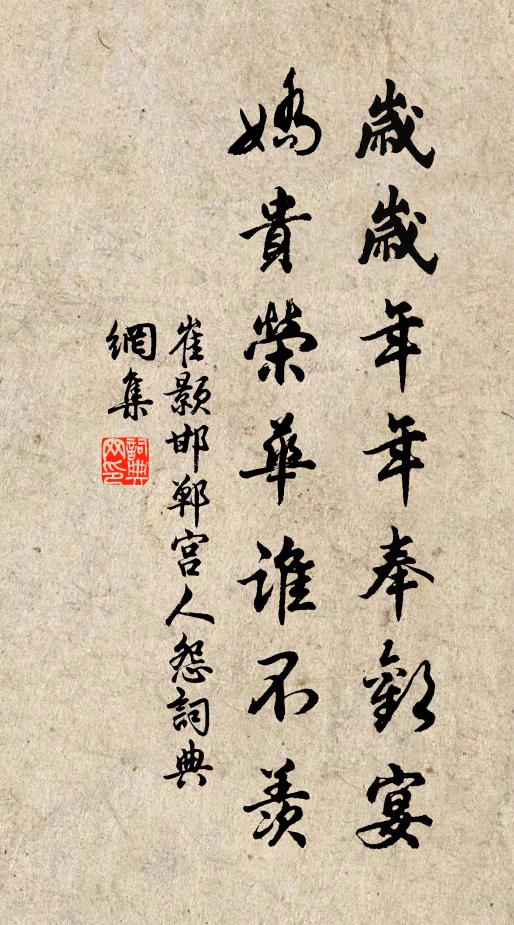 歲歲年年奉歡宴
嬌貴榮華誰不羨
崔顥邯鄲宮人怨詞典
網集
詞典網印